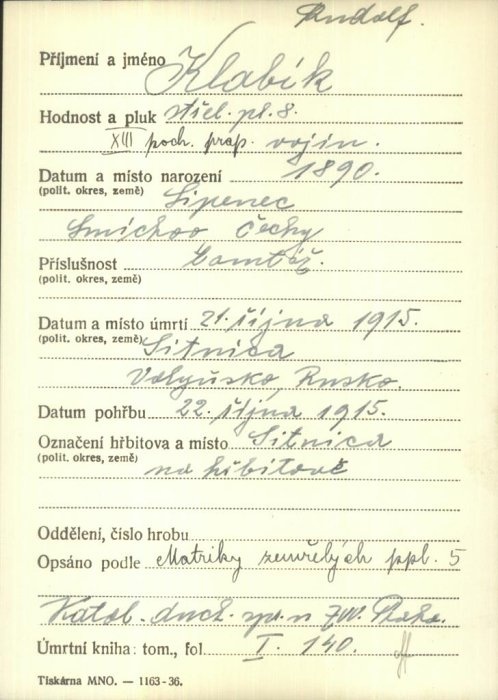 Rudolf.
Příjmení a jméno Klabík
Hodnost a pluk střel. pl. 8.
XIII poch. prap. vojín.
Datum a místo narození 1890.
(polit. okres, země) Lipenec
Smíchov Čechy
Příslušnost tamtéž.
(polit. okres, země)
Datum a místo úmrtí 21. října 1915.
(polit. okres, země) Sitnica
Volyňsko, Rusko.
Datum pohřbu 22. října 1915.
Označení hřbitova a místo Sitnica
(polit. okres, země) na hřbitově
Oddělení, číslo hrobu
Opsáno podle Matriky zemřelých ppl. 5
Katol. duch. spr. n ZVV. Praha.
Úmrtní kniha: tom., fol. I. 140.
Tiskárna MNO. — 1163-36.